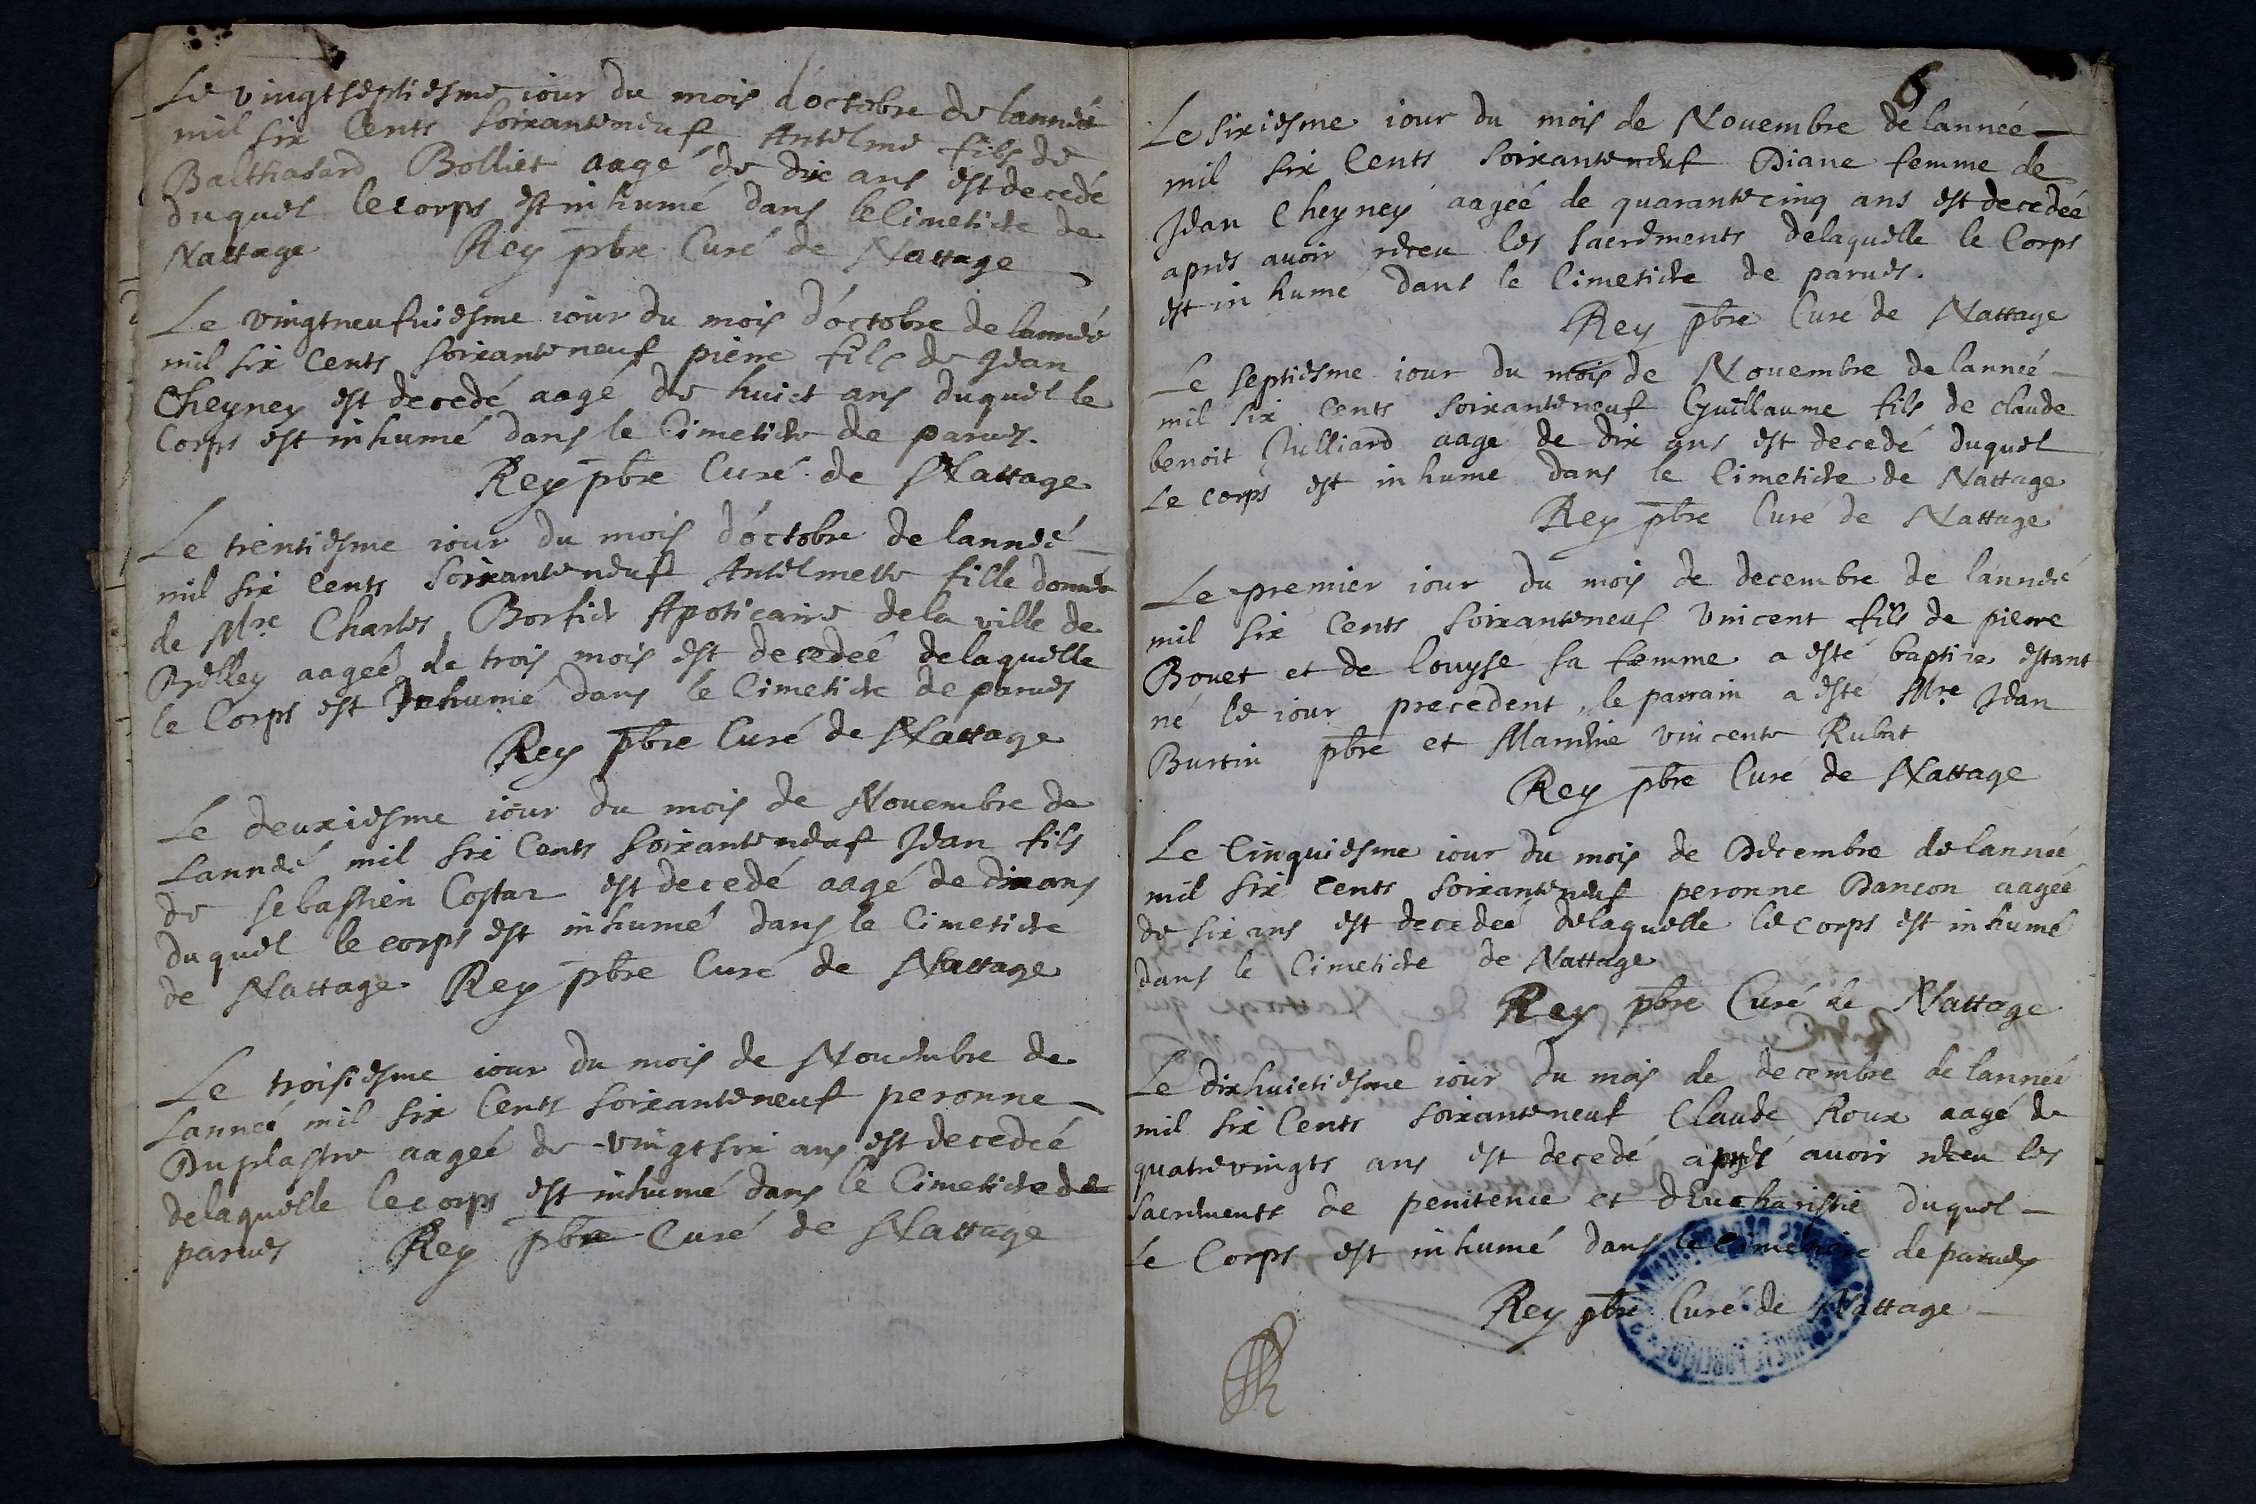 Le vingtseptiesme iour du mois d'octobre de lannée
mil six Cents soixanteneuf Antelme fils de
Balthasard Bolliet aagé de dix ans est decedé
duquel le corps est inhumé dans le Cimetiere de
Nattage Rey pbre Curé de Nattage
Le vingtneufuiesme iour du mois d'octobre de lannée
mil six Cents soixanteneuf pierre fils de Jean
Cheyney est decedé aagé de huict ans duquel le
Corps est inhumé dans le Cimetiere de parues.
Rey pbre Curé de Nattage
Le trentiesme iour du mois d'octobre de lannée
mil six Cents soixanteneuf Antelmette fille donnée
de Mre Charles Apoticaire dela ville de
Belley aageé de trois mois est decedeé delaquelle
le Corps est Inhumé dans le Cimetiere de parues
Rey pbre Curé de Nattage
Le deuxiesme iour du mois de Nouembre de
Lannée mil six Cents soixanteneuf Jean fils
de sebastien Costaz est decedé aagé de dix ans
duquel le corps est inhumé dans le Cimetiere
de Nattage Rey pbre Curé de Nattage
Le troisiesme iour du mois de Nouembre de
Lanneé mil six Cents soixanteneuf peronne
Duplastre aageé de vingtsix ans est decedeé
delaquelle le corps est inhumé dans le Cimetiere de
parues Rey pbre Curé de Nattage
6
Le sixiesme iour du mois de Nouembre de lannée
mil six Cents soixanteneuf Diane femme de
Jean Cheyney aageé de quarantecinq ans est decedeé
apres auoir receu les sacrements delaquelle le Corps
est inhumé dans le Cimetiere de parues.
Rey pbre Curé de Nattage
Le septiesme iour du mois de Nouembre de lannée
mil six Cents soixanteneuf Guillaume fils de claude
benoit Julliard aage de dix ans est decedé duquel
Le corps est inhume dans le Cimetiere de Nattage
Rey pbre Curé de Nattage
Le premier iour du mois de decembre de lannée
mil six Cents soixanteneuf vincent fils de pierre
Bouet et de louyse sa femme a esté baptize estant
né le iour precedent, le parrain a esté Mre Jean
Burtin pbre et Marraine vincente Rubat
Rey pbre Curé de Nattage
Le Cinquiesme iour du mois de Decembre de lannée
mil six Cents soixanteneuf peronne Dancon aageé
de six ans est decedeé delaquelle le corps est inhumé
dans le Cimetiere de Nattage
Rey pbre Curé de Nattage
Le dixhuictiesme iour du mois de decembre de lannée
mil six Cents soixanteneuf Claude Roux aagé de
quatrevingts ans est decedé apres auoir receu les
sacrements de penitence et d'Eucharistie duquel
le Corps est inhumé dans le Cimetiere de parues
Rey pbre Curé de Nattage